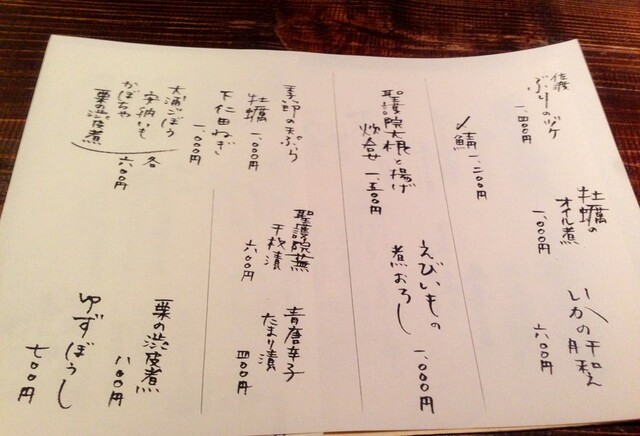 佐渡
ぶりのヅケ
一、四〇〇円
〆鯖 一、二〇〇円
牡蠣の
オイル煮
一、〇〇〇円
いかの肝和え
六〇〇円
聖護院大根と揚げ
炊合せ 一、五〇〇円
えびいもの
煮おろし
一、〇〇〇円
季節の天ぷら
牡蠣 一、〇〇〇円
下仁田ねぎ
一、〇〇〇円
大浦ごぼう
安納いも
かぼちゃ
栗の渋皮煮
各
六〇〇円
聖護院蕪
千枚漬
六〇〇円
青唐辛子
たまり漬
四〇〇円
栗の渋皮煮
八〇〇円
ゆずぼうし
七〇〇円